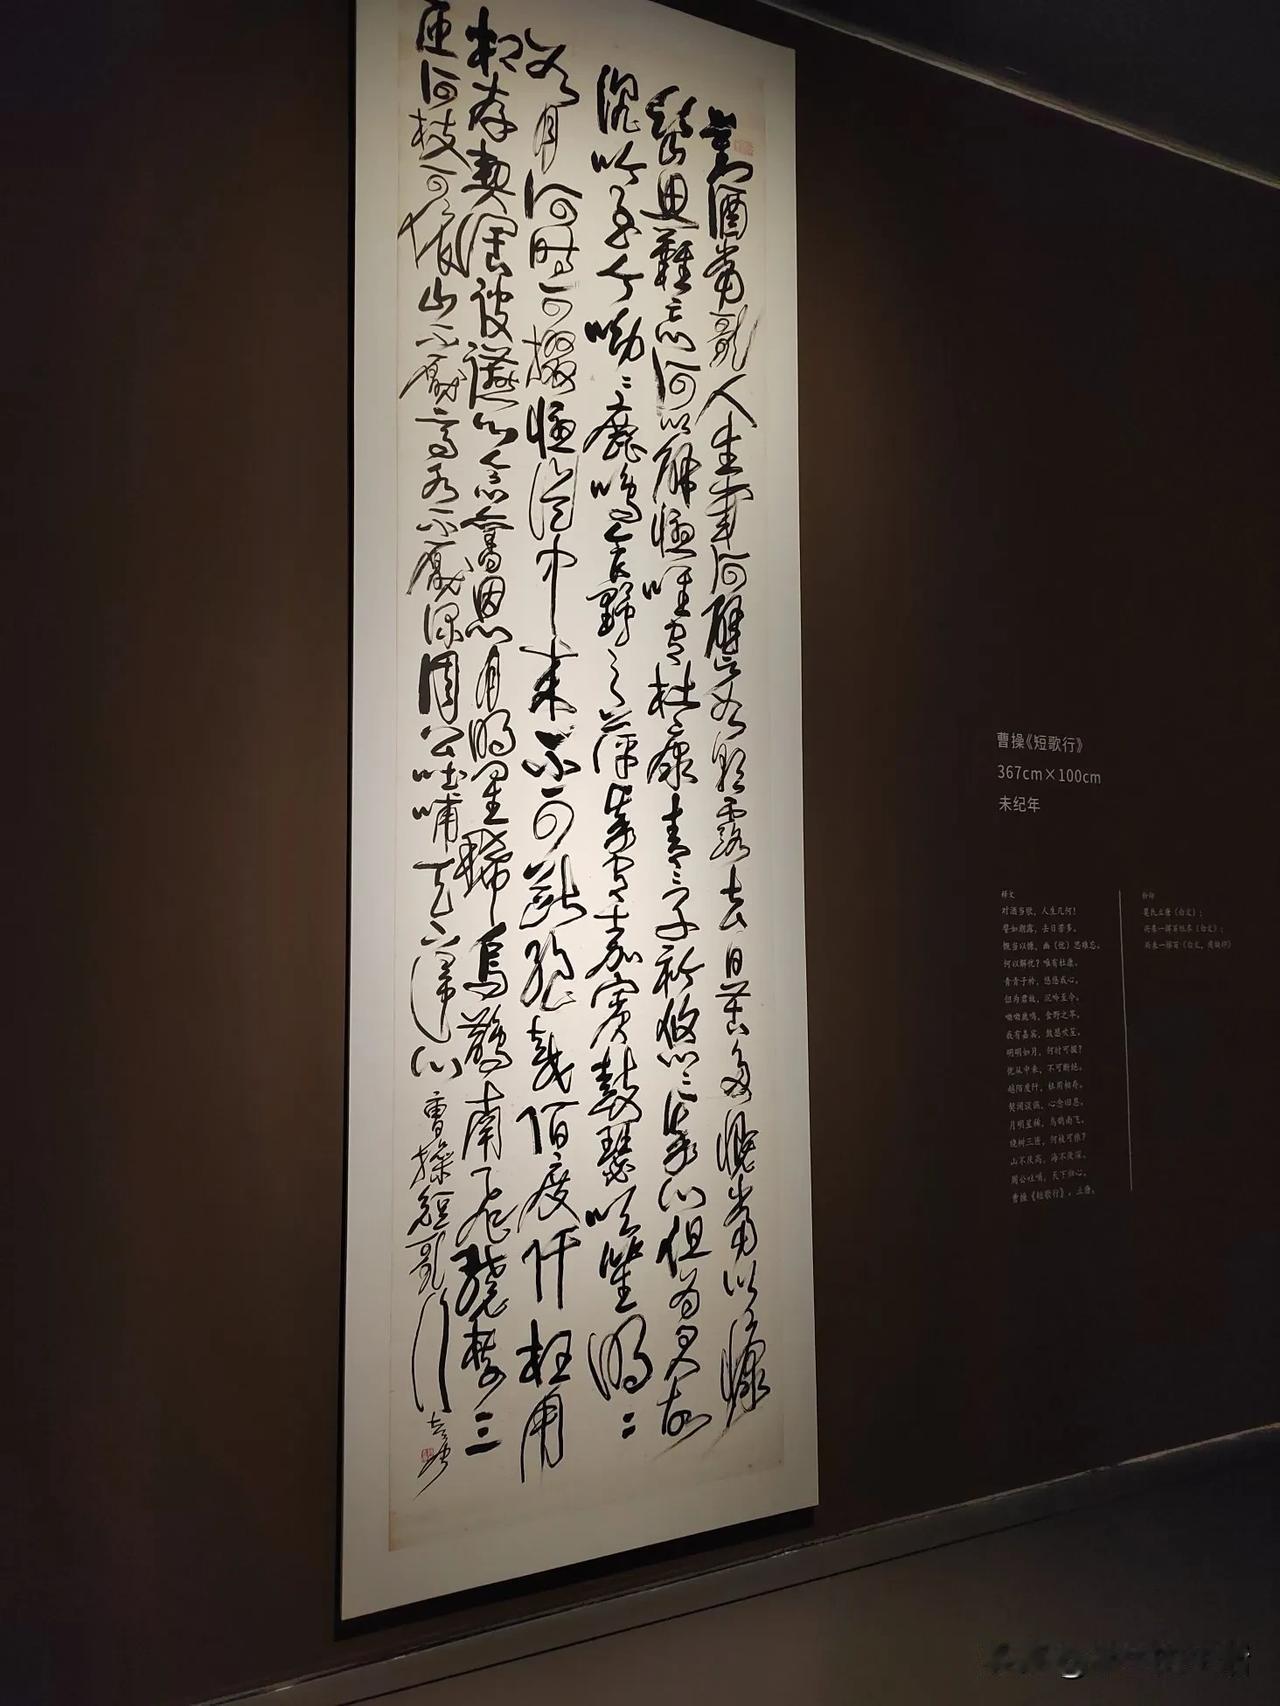 對酒當歌人生幾何譬如朝露去日苦多慨當以慷
幽思難忘何以解憂唯有杜康青々子衿悠々我心但為君故
沉吟至今呦々鹿鳴食野之苹我有嘉賓鼓瑟吹笙明々
如月何時可掇憂從中來不可斷絕越陌度阡枉用
相存契闊談讌心念舊恩月明星稀烏鵲南飛繞樹三
匝何枝可依山不厭高水不厭深周公吐哺天下歸心
曹操短歌行
立唐
曹操《短歌行》
367cm×100cm
未纪年
释文
对酒当歌，人生几何！
譬如朝露，去日苦多。
慨当以慷，幽（忧）思难忘。
何以解忧？唯有杜康。
青青子衿，悠悠我心。
但为君故，沉吟至今。
呦呦鹿鸣，食野之苹。
我有嘉宾，鼓瑟吹笙。
明明如月，何时可掇？
忧从中来，不可断绝。
越陌度阡，枉用相存。
契阔谈讌，心念旧恩。
月明星稀，乌鹊南飞。
绕树三匝，何枝可依？
山不厌高，海不厌深。
周公吐哺，天下归心。
曹操《短歌行》，立唐。
钤印